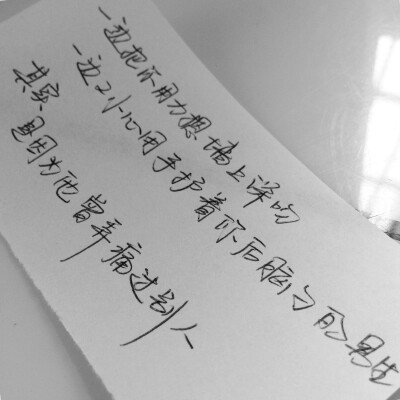 一边把你用力想墙上深吻
一边小心用手护着你后脑勺的男生
其实
是因为他曾弄痛过别人